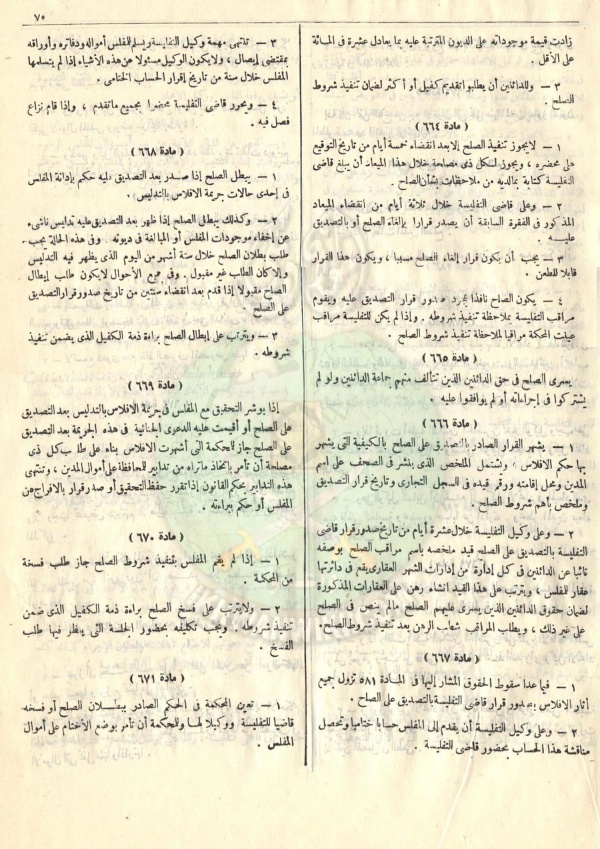 ٧٥
زادت قيمة موجوداته على الديون المترتبة عليه بما يعادل عشرة فى المائة
على الأقل .
٣ — وللدائنين أن يطلبوا تقديم كفيل أو أكثر لضمان تنفيذ شروط
الصلح .
( مادة ٦٦٤ )
١ — لا يجوز تنفيذ الصلح إلا بعد انقضاء خمسة أيام من تاريخ التوقيع
على محضره ، ويجوز لكل ذى مصلحة خلال هذا الميعاد أن يبلغ قاضى
التفليسة كتابة بما لديه من ملاحظات بشأن الصلح .
٢ — وعلى قاضى التفليسة خلال ثلاثة أيام من انقضاء الميعاد
المذكور فى الفقرة السابقة أن يصدر قرارا بإلغاء الصلح أو بالتصديق
عليــه .
٣ — يجب أن يكون قرار إلغاء الصلح مسببا ، ويكون هذا القرار
قابلا للطعن .
٤ — يكون الصلح نافذا بمجرد صدور قرار التصديق عليه ويقوم
مراقب التفليسة بملاحظة تنفيذ شروطه . وإذا لم يكن للتفليسة مراقب
عينت المحكمة مراقبا لملاحظة تنفيذ شروط الصلح .
( مادة ٦٦٥ )
يسرى الصلح فى حق الدائنين الذين تتألف منهم جماعة الدائنين ولو لم
يشتركوا فى إجراءاته أو لم يوافقوا عليه .
( مادة ٦٦٦ )
١ — يشهر القرار الصادر بالتصديق على الصلح بالكيفية التى يشهر
بها حكم الافلاس ، ويشتمل الملخص الذى ينشر فى الصحف على اسم
المدين ومحل إقامته ورقم قيده فى السجل التجارى وتاريخ قرار التصديق
وملخص بأهم شروط الصلح .
٢ — وعلى وكيل التفليسة خلال عشرة أيام من تاريخ صدور قرار قاضى
التفليسة بالتصديق على الصلح قيد ملخصه باسم مراقب الصلح بوصفه
نائبا عن الدائنين فى كل إدارة من إدارات الشهر العقارى يقع فى دائرتها
عقار للمفلس ، ويترتب على هذا القيد انشاء رهن على العقارات المذكورة
لضمان حقوق الدائنين الذين يسرى عليهم الصلح مالم ينص فى الصلح
على غير ذلك ، ويطلب المراقب شطب الرهن بعد تنفيذ شروط الصلح .
( مادة ٦٦٧ )
١ — فيما عدا سقوط الحقوق المشار إليها فى المــادة ٥٨١ تزول جميع
آثار الافلاس بصدور قرار قاضى التفليسة بالتصديق على الصلح .
٢ — وعلى وكيل التفليسة أن يقدم إلى المفلس حسابا ختاميا وتحصل
مناقشة هذا الحساب بحضور قاضى التفليسة .
٣ — تنتهى مهمة وكيل التفليسة ويسلم للمفلس أمواله ودفاتره وأوراقه
بمقتضى إيصال ، ولا يكون الوكيل مسئولا عن هذه الأشياء إذا لم يتسلمها
المفلس خلال سنة من تاريخ إقرار الحساب الختامى .
٤ — ويحرر قاضى التفليسة محضرا بجميع ماتقدم ، وإذا قام نزاع
فصل فيه .
( مادة ٦٦٨ )
١ — يبطل الصلح إذا صدر بعد التصديق عليه حكم بإدانة المفلس
فى إحدى حالات جريمة الافلاس بالتدليس .
٢ — وكذلك يبطل الصلح إذا ظهر بعد التصديق عليه تدليس ناشىء
عن إخفاء موجودات المفلس أو المبالغة فى ديونه . وفى هذه الحالة يجب
طلب بطلان الصلح خلال ستة أشهر من اليوم الذى يظهر فيه التدليس
وإلا كان الطلب غير مقبول . وفى جميع الأحوال لا يكون طلب إبطال
الصلح مقبولا إذا قدم بعد انقضاء سنتين من تاريخ صدور قرار التصديق
على الصلح .
٣ — ويترتب على إبطال الصلح براءة ذمة الكفيل الذى يضمن تنفيذ
شروطه .
( مادة ٦٦٩ )
إذا بوشر التحقيق مع المفلس فى جريمة الافلاس بالتدليس بعد التصديق
على الصلح أو أقيمت عليه الدعوى الجنائية فى هذه الجريمة بعد التصديق
على الصلح جاز للمحكمة التى أشهرت الافلاس بناء على طلب كل ذى
مصلحة أن تأمر باتخاذ ماتراه من تدابير للمحافظة على أموال المدين ، وتنتهى
هذه التدابير بحكم القانون إذا تقرر حفظ التحقيق أو صدر قرار بالافراج عن
المفلس أو حكم ببراءته .
( مادة ٦٧٠ )
١ — إذا لم يقم المفلس بتنفيذ شروط الصلح جاز طلب فسخة
من المحكمة .
٢ — ولا يترتب على فسخ الصلح براءة ذمة الكفيل الذى ضمن
تنفيذ شروطه . ويجب تكليفه بحضور الجلسة التى ينظر فيها طلب
الفسخ .
( مادة ٦٧١ )
١ — تعين المحكمة فى الحكم الصادر ببطــلان الصلح أو فسخه
قاضيا للتفليسة ووكيلا لهــا وللمحكمة أن تأمر بوضع الأختام على أموال
المفلس .